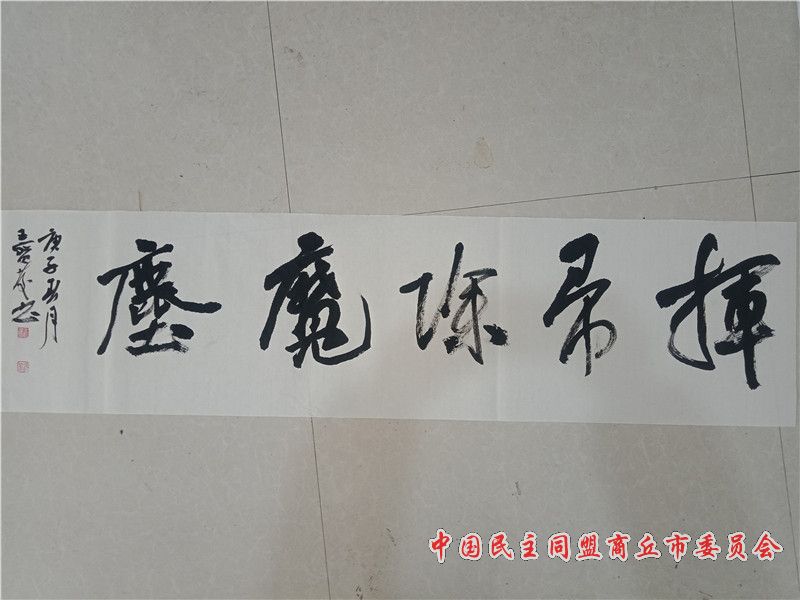 揮帚除魔塵
庚子春月
中国民主同盟商丘市委员会